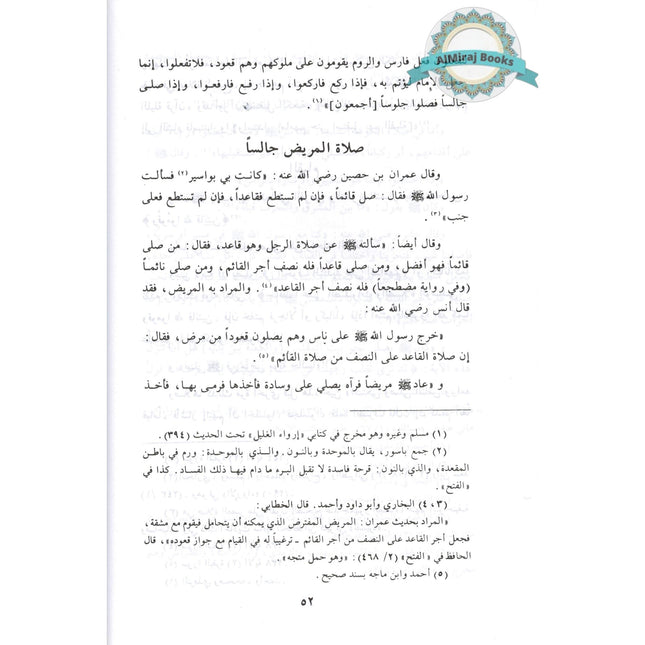 AlMiraj Books
فعل فارس والروم يقومون على ملوكهم وهم قعود، فلا تفعلوا، إنما
الإمام ليؤتم به، فإذا ركع فاركعوا، وإذا رفع فارفعوا، وإذا صلى
جالساً فصلوا جلوساً [أجمعون]»(١) .
صلاة المريض جالساً
وقال عمران بن حصين رضي الله عنه : «كانت بي بواسير(٢) فسألت
رسول الله ﷺ فقال : صل قائماً، فإن لم تستطع فقاعداً، فإن لم تستطع فعلى
جنب»(٣) .
وقال أيضاً : «سألته ﷺ عن صلاة الرجل وهو قاعد، فقال : من صلى
قائماً فهو أفضل، ومن صلى قاعداً فله نصف أجر القائم، ومن صلى نائماً
(وفي رواية مضطجعاً) فله نصف أجر القاعد»(٤) . والمراد به المريض، فقد
قال أنس رضي الله عنه :
«خرج رسول الله ﷺ على ناس وهم يصلون قعوداً من مرض، فقال :
إن صلاة القاعد على النصف من صلاة القائم»(٥) .
و «عاد ﷺ مريضاً فرآه يصلي على وسادة فأخذها فرمى بها، فأخذ
(١) مسلم وغيره وهو مخرج في كتابي «إرواء الغليل» تحت الحديث (٣٩٤) .
(٢) جمع باسور، يقال بالموحدة وبالنون . والذي بالموحدة : ورم في باطن
المقعدة، والذي بالنون : قرحة فاسدة لا تقبل البرء ما دام فيها ذلك الفساد . كذا في
«الفتح» .
(٣ ، ٤) البخاري وأبو داود وأحمد . قال الخطابي :
«المراد بحديث عمران : المريض المفترض الذي يمكنه أن يتحامل فيقوم مع مشقة ،
فجعل أجر القاعد على النصف من أجر القائم ـ ترغيباً له في القيام مع جواز قعوده» ، قال
الحافظ في «الفتح» (٢/ ٤٦٨) : «وهو حمل متجه» .
(٥) أحمد وابن ماجه بسند صحيح .
٥٢